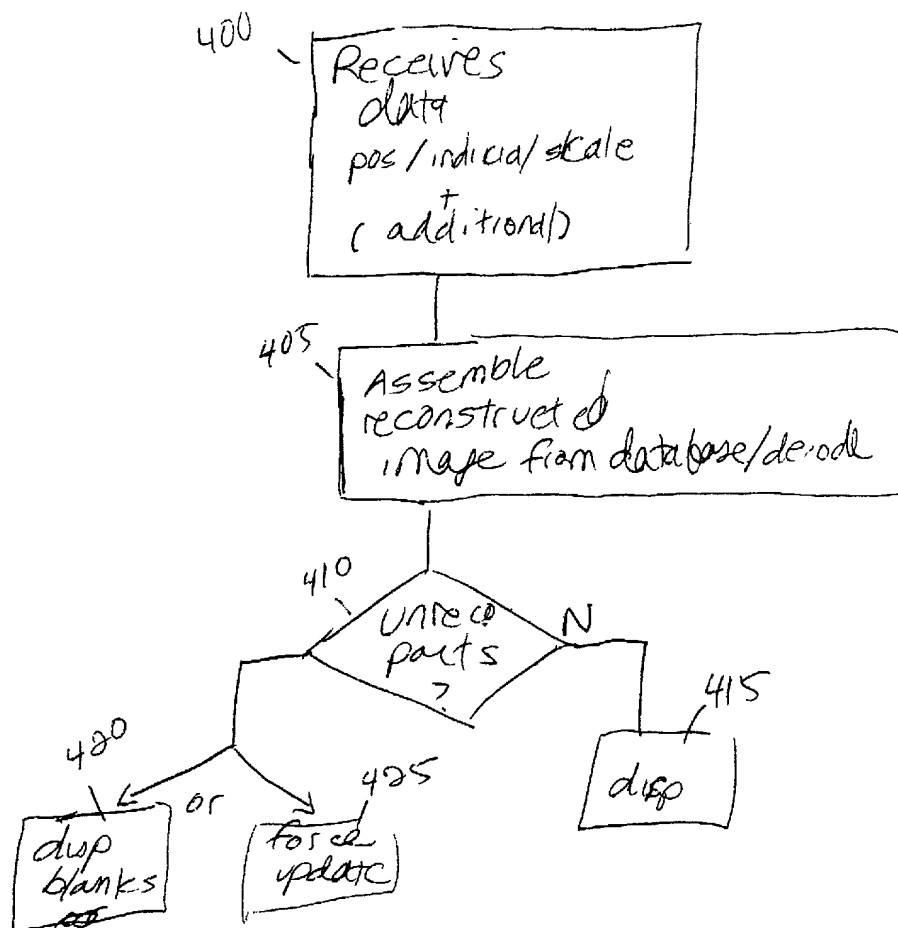 400
Receives
data
pos / indicia / scale
+
( additional)
405
Assemble
reconstructed
image from database/decode
410
unreco
parts
?
N
415
disp
420
or
425
disp
blanks
force
update